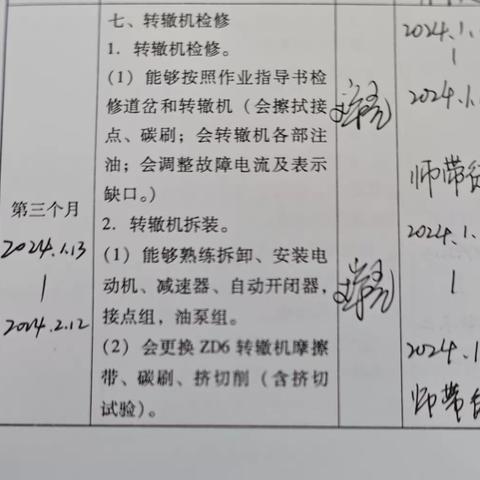 七、转辙机检修
1. 转辙机检修。
(1) 能够按照作业指导书检
修道岔和转辙机（会擦拭接
点、碳刷；会转辙机各部注
油；会调整故障电流及表示
缺口。）
2. 转辙机拆装。
(1) 能够熟练拆卸、安装电
动机、减速器、自动开闭器，
接点组，油泵组。
(2) 会更换 ZD6 转辙机摩擦
带、碳刷、挤切削（含挤切
试验）。
第三个月
2024.1.13
|
2024.2.12
2024.1.
|
2024.1.
师带
2024.1.
|
2024.1
师带